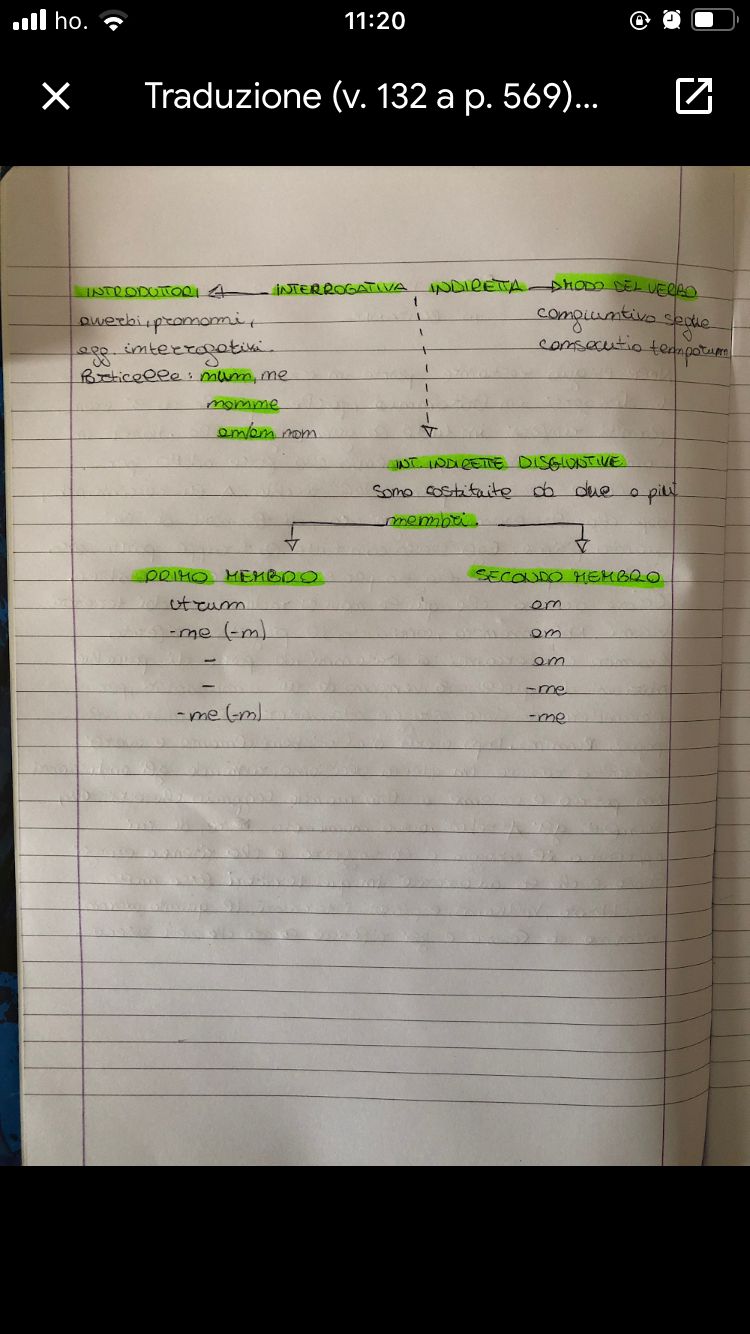 ho. 11:20
Traduzione (v. 132 a p. 569)...
INTRODUTTORI INTERROGATIVA INDIRETTA MODO DEL VERBO
avverbi, pronomi, congiuntivo segue
agg. interrogativi. consecutio temporum
Particelle: num, ne
nonne
an/an non
INT. INDIRETTE DISGIUNTIVE
sono costituite da due o più
membri.
PRIMO MEMBRO SECONDO MEMBRO
utrum an
-ne (-n) an
- an
- -ne
-ne (-n) -ne